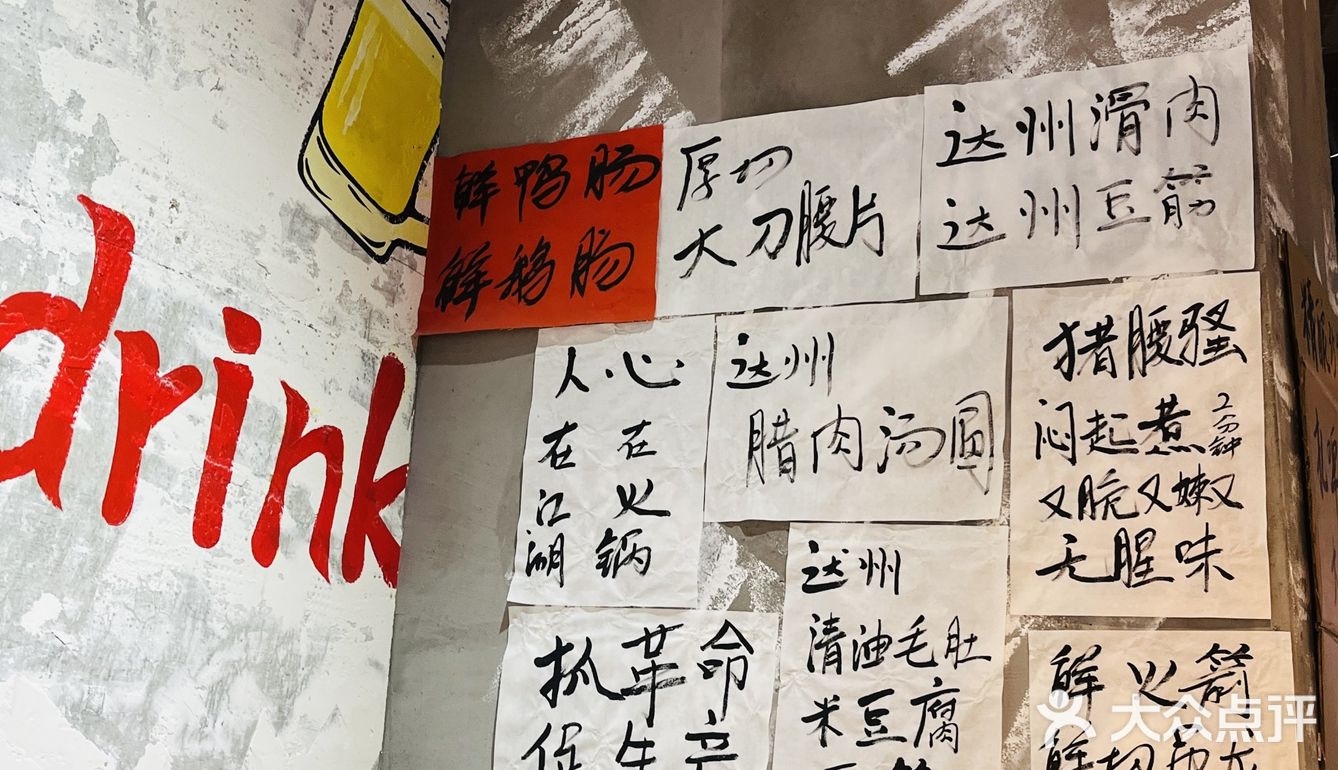 drink
鲜鸭肠
鲜鹅肠
厚切
大刀腰片
达州滑肉
达州豆筋
人心
在在
江火
湖锅
达州
腊肉汤圆
猪腰骚
闷起煮2分钟
又脆又嫩又
无腥味
抓革命
促生产
达州
清油毛肚
米豆腐
鲜火箭
鲜切
大众点评